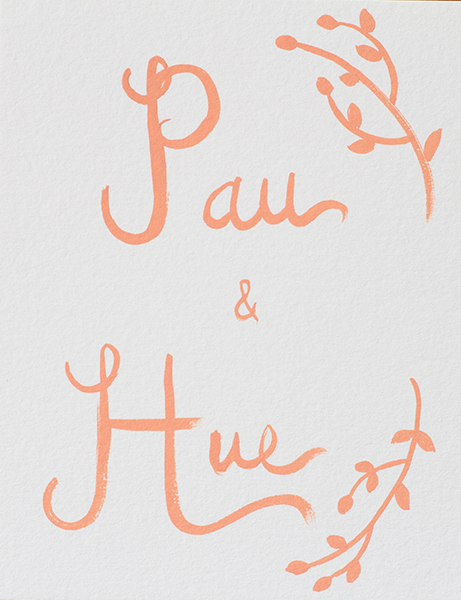 Pau
&
Hue